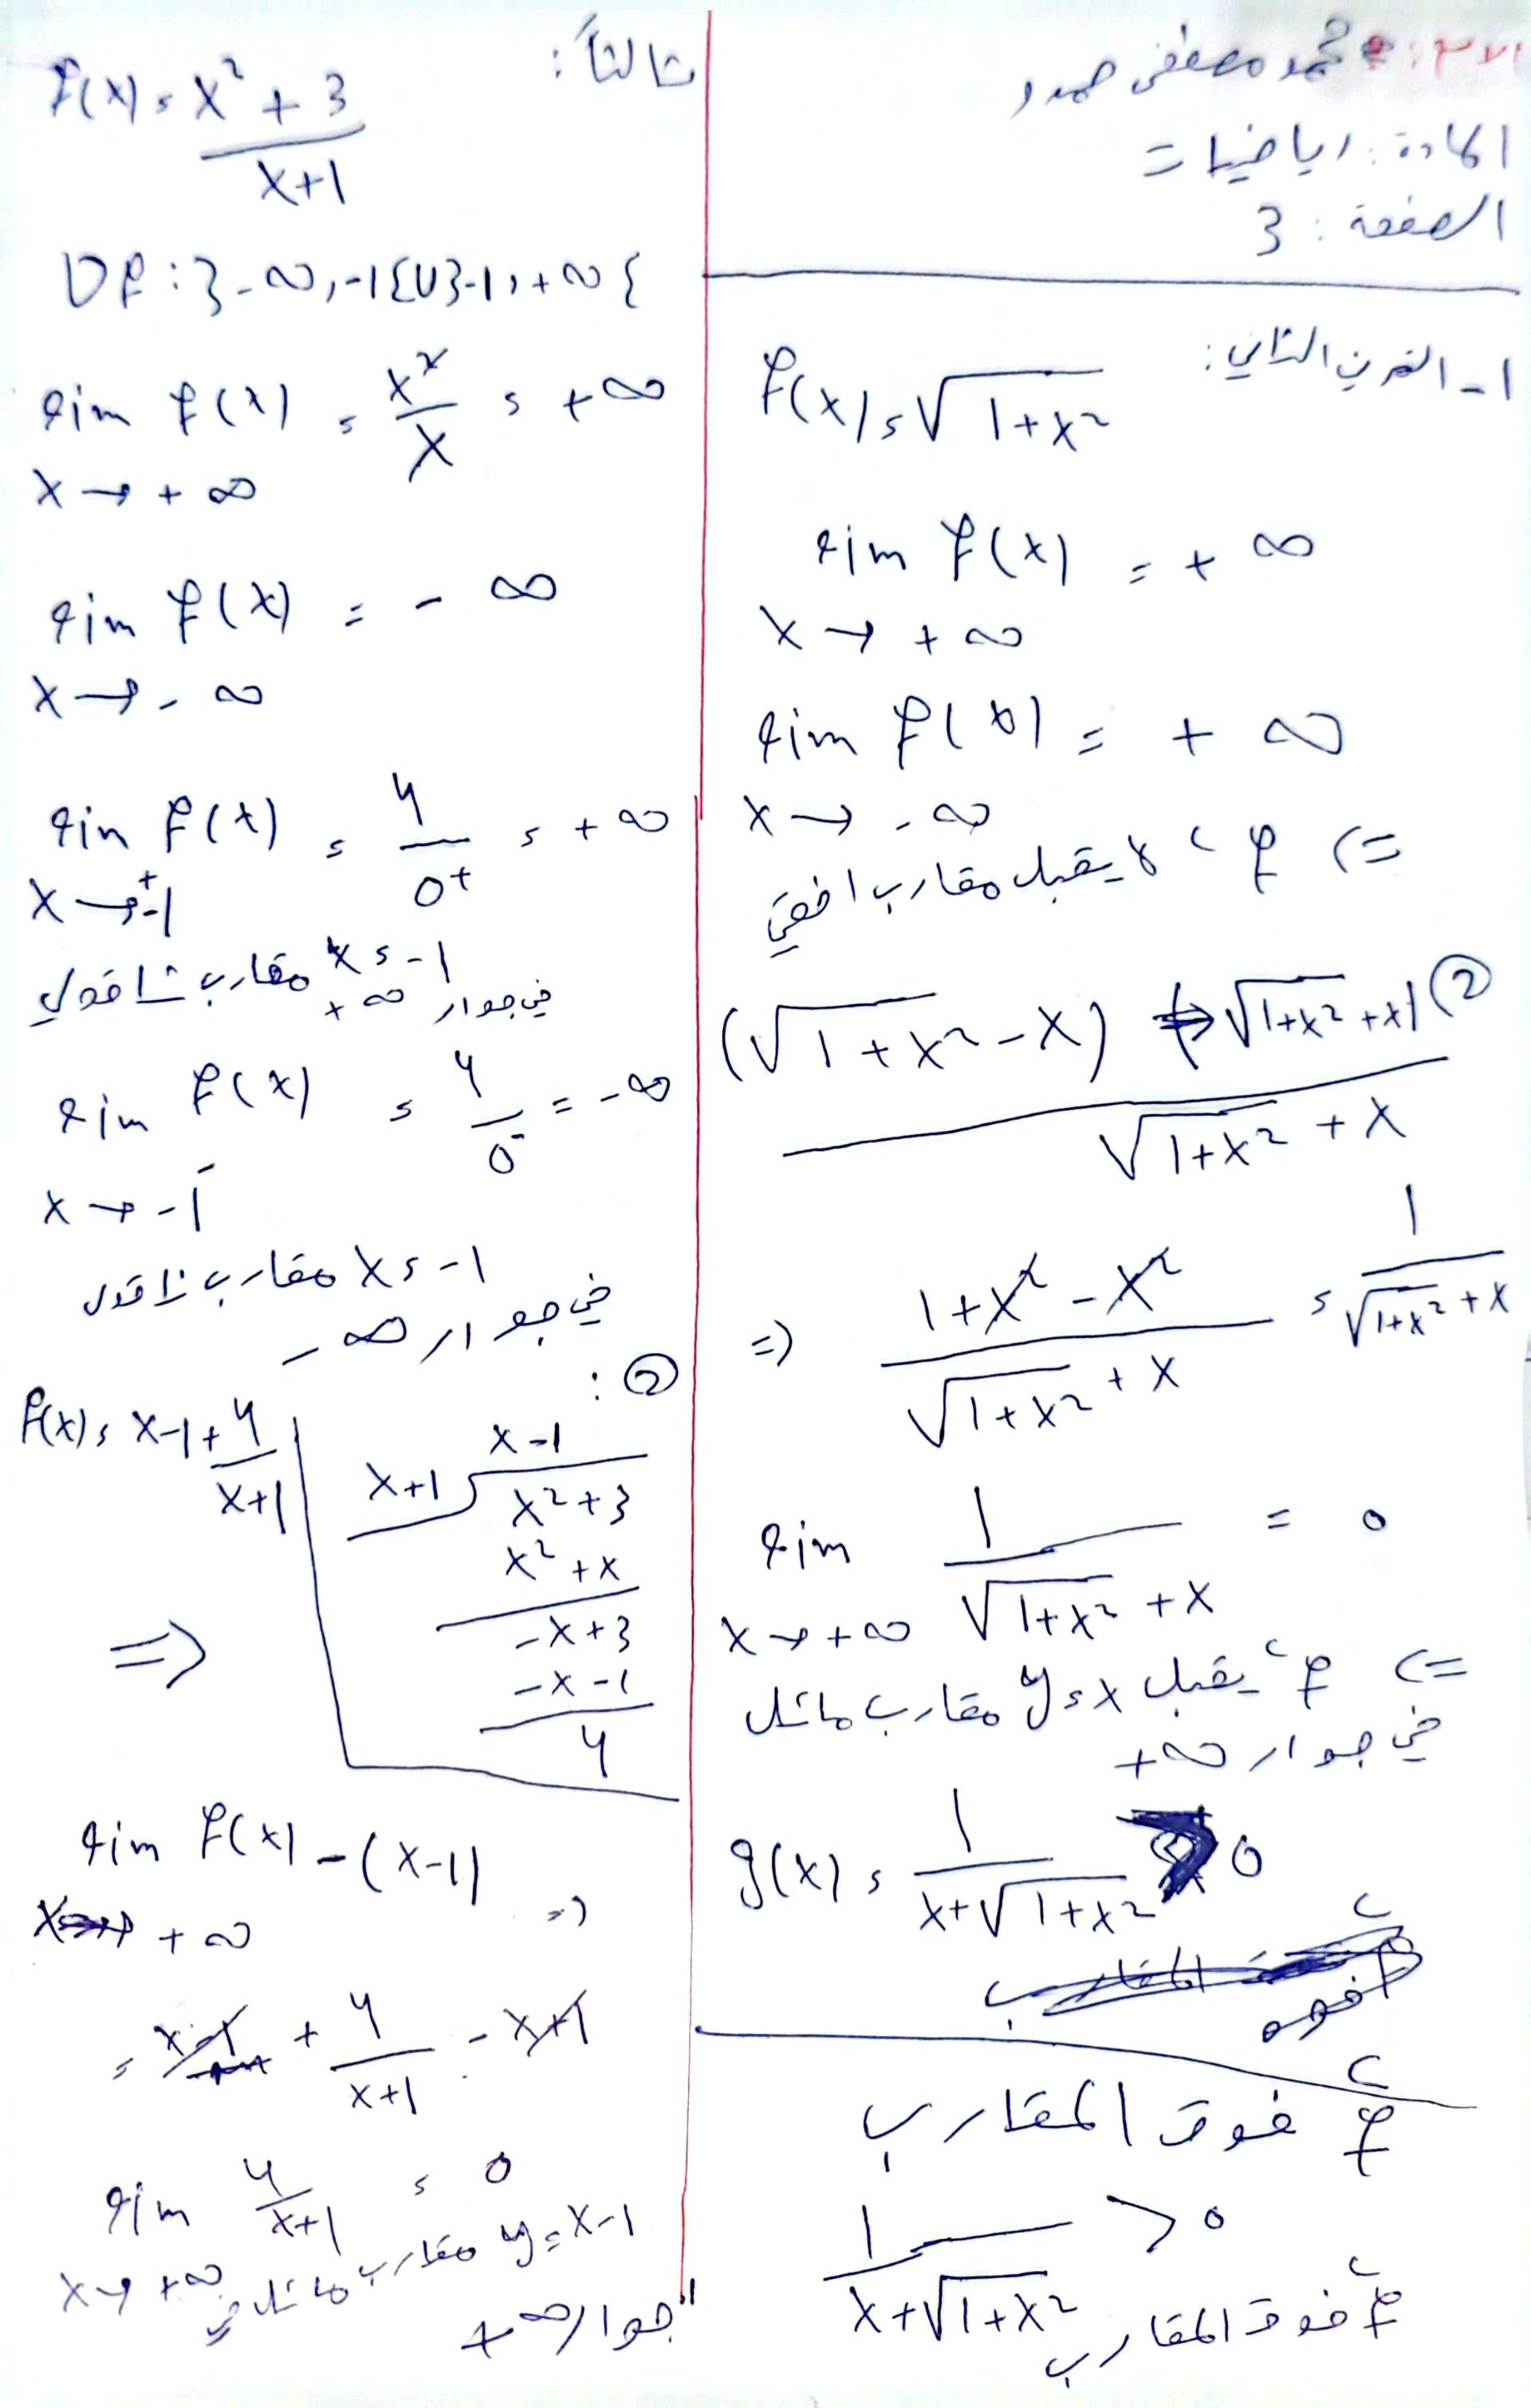 الاسم: محمد مصطفى حمدو
المادة: رياضيات
الصفحة: 3
1- التمرين الثاني:
f(x) = √(1+x²)
lim f(x) = +∞
x → +∞
lim f(x) = + ∞
x → -∞
=> C f لا يقبل مقارب افقي
② (√(1+x²) - x) (√(1+x²) + x)
√(1+x²) + x
=> (1+x² - x²) / (√(1+x²) + x) = 1 / (√(1+x²) + x)
lim 1 / (√(1+x²) + x) = 0
x → +∞
=> C f يقبل y = x مقارب مائل
في جوار +∞
g(x) = 1 / (x+√(1+x²)) > 0
C f فوق المقارب
1 / (x+√(1+x²)) > 0
C f فوق المقارب
ثالثاً:
f(x) = (x² + 3) / (x+1)
Df : }-∞, -1{ U }-1, +∞{
lim f(x) = x²/x = +∞
x → +∞
lim f(x) = - ∞
x → -∞
lim f(x) = 4/0⁺ = +∞
x → -1⁺
x = -1 مقارب شاقولي
في جوار +∞
lim f(x) = 4/0⁻ = -∞
x → -1⁻
x = -1 مقارب شاقولي
في جوار -∞
② :
x-1
x+1 x²+3
x² + x
-x+3
-x-1
4
=> f(x) = x-1 + 4/(x+1)
lim f(x) - (x-1)
x → +∞ =>
= x-1 + 4/(x+1) - x+1
lim 4/(x+1) = 0
x → +∞
y = x-1 مقارب مائل في
جوار +∞